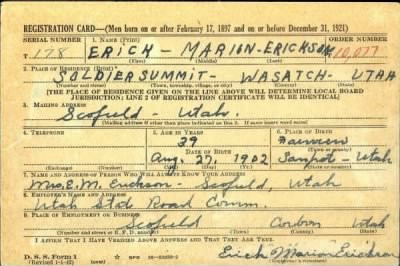 REGISTRATION CARD—(Men born on or after February 17, 1897 and on or before December 31, 1921)
SERIAL NUMBER 1. NAME (Print) ORDER NUMBER
T 178 ERICH - MARION - ERICKSON 10,077
(First) (Middle) (Last)
2. PLACE OF RESIDENCE (Print)
SOLDIER SUMMIT - WASATCH - UTAH
(Number and street) (Town, township, village, or city) (County) (State)
[THE PLACE OF RESIDENCE GIVEN ON THE LINE ABOVE WILL DETERMINE LOCAL BOARD
JURISDICTION; LINE 2 OF REGISTRATION CERTIFICATE WILL BE IDENTICAL]
3. MAILING ADDRESS
Scofield Utah.
[Mailing address if other than place indicated on line 2. If same insert word same]
4. TELEPHONE 5. AGE IN YEARS 6. PLACE OF BIRTH
39
DATE OF BIRTH (Town or county)
Aug. 27, 1902 Utah
(Exchange) (Number) (Mo.) (Day) (Yr.) (State or country)
7. NAME AND ADDRESS OF PERSON WHO WILL ALWAYS KNOW YOUR ADDRESS
Mrs. E. M. Erickson - Scofield, Utah
8. EMPLOYER'S NAME AND ADDRESS
Utah State Road Comm.
9. PLACE OF EMPLOYMENT OR BUSINESS
Scofield Carbon Utah
(Number and street or R. F. D. number) (Town) (County) (State)
I AFFIRM THAT I HAVE VERIFIED ABOVE ANSWERS AND THAT THEY ARE TRUE.
D. S. S. Form 1
(Revised 1-1-42) GPO Erich Marion Erickson